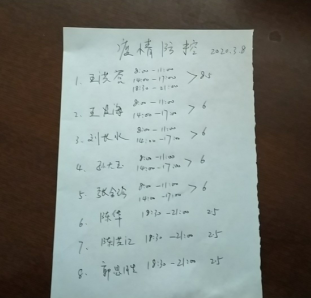 疫情防控 2020.3.8
8:00-11:00
1. 王洪 14:00-17:00 > 8.5
18:30-21:00
8:00-11:00
2. 王 14:00-17:00 > 6
8:00-11:00
3. 刘长 14:00-17:00 > 6
8:00-11:00
4. 孙大 14:00-17:00 > 6
8:00-11:00
5. 张 14:00-17:00 > 6
6. 陈华 18:30-21:00 2.5
7. 陈 18:30-21:00 2.5
8. 18:30-21:00 2.5